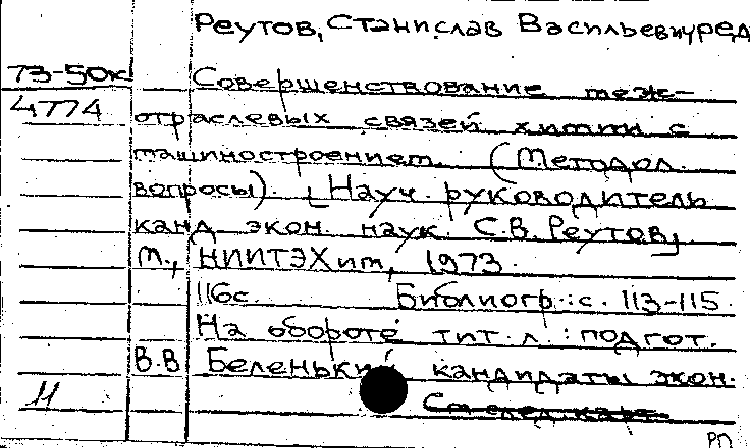 Реутов, Станислав Васильевич, ред
73-50к Совершенствование меж-
4774 отраслевых связей химии с
машиностроением. (Методол.
вопросы). [Науч. руководитель
канд. экон. наук С.В. Реутов].
М., НИИТЭХим, 1973.
116с. Библиогр.: с. 113-115.
На обороте тит. л.: подгот.
В.В. Беленький, кандидаты экон.
11 См след. карт.
РП